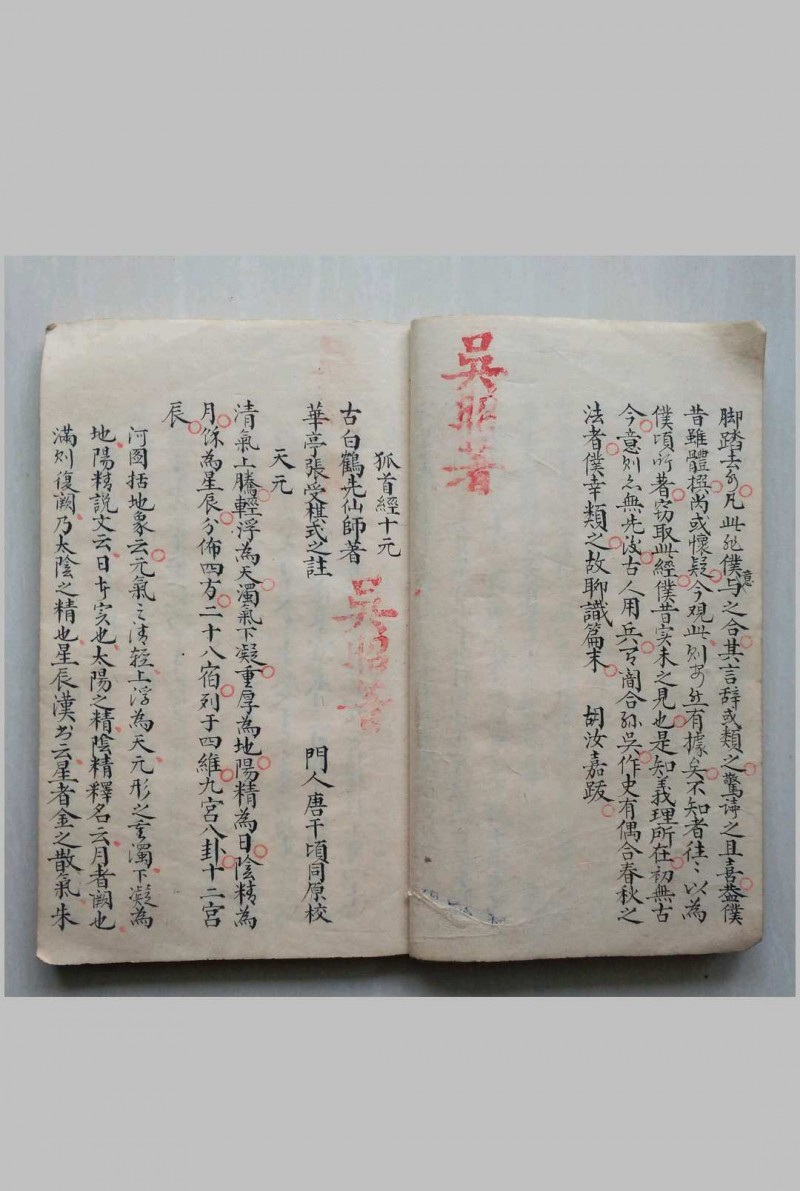 脚踏去者凡此死僕意与之合其言辞或類之驚訝之且喜葢僕
昔雖體撰尚或懷疑今观此则安然有據矣不知者往〻以為
僕頃所著窃取此经僕昔实未之見也是知義理所在初無古
今意则亦無先後古人用兵有闇合孙吴作史有偶合春秋之
法者僕幸類之故聊識篇末 胡汝嘉跋
吳昭著
狐首經十元
古白鶴先仙師著
華亭張受棋式之註 門人唐千頃同原校
吳昭著
天元
清氣上騰輕浮為天濁氣下凝重厚為地陽精為日陰精為
月餘為星辰分佈四方二十八宿列于四維九宮八卦十二宮
辰
河图括地象云元氣之清轻上浮為天元形之重濁下凝為
地陽精説文云日者实也太陽之精陰精釋名云月者阙也
滿则復阙乃太陰之精也星辰漢书云星者金之散氣朱